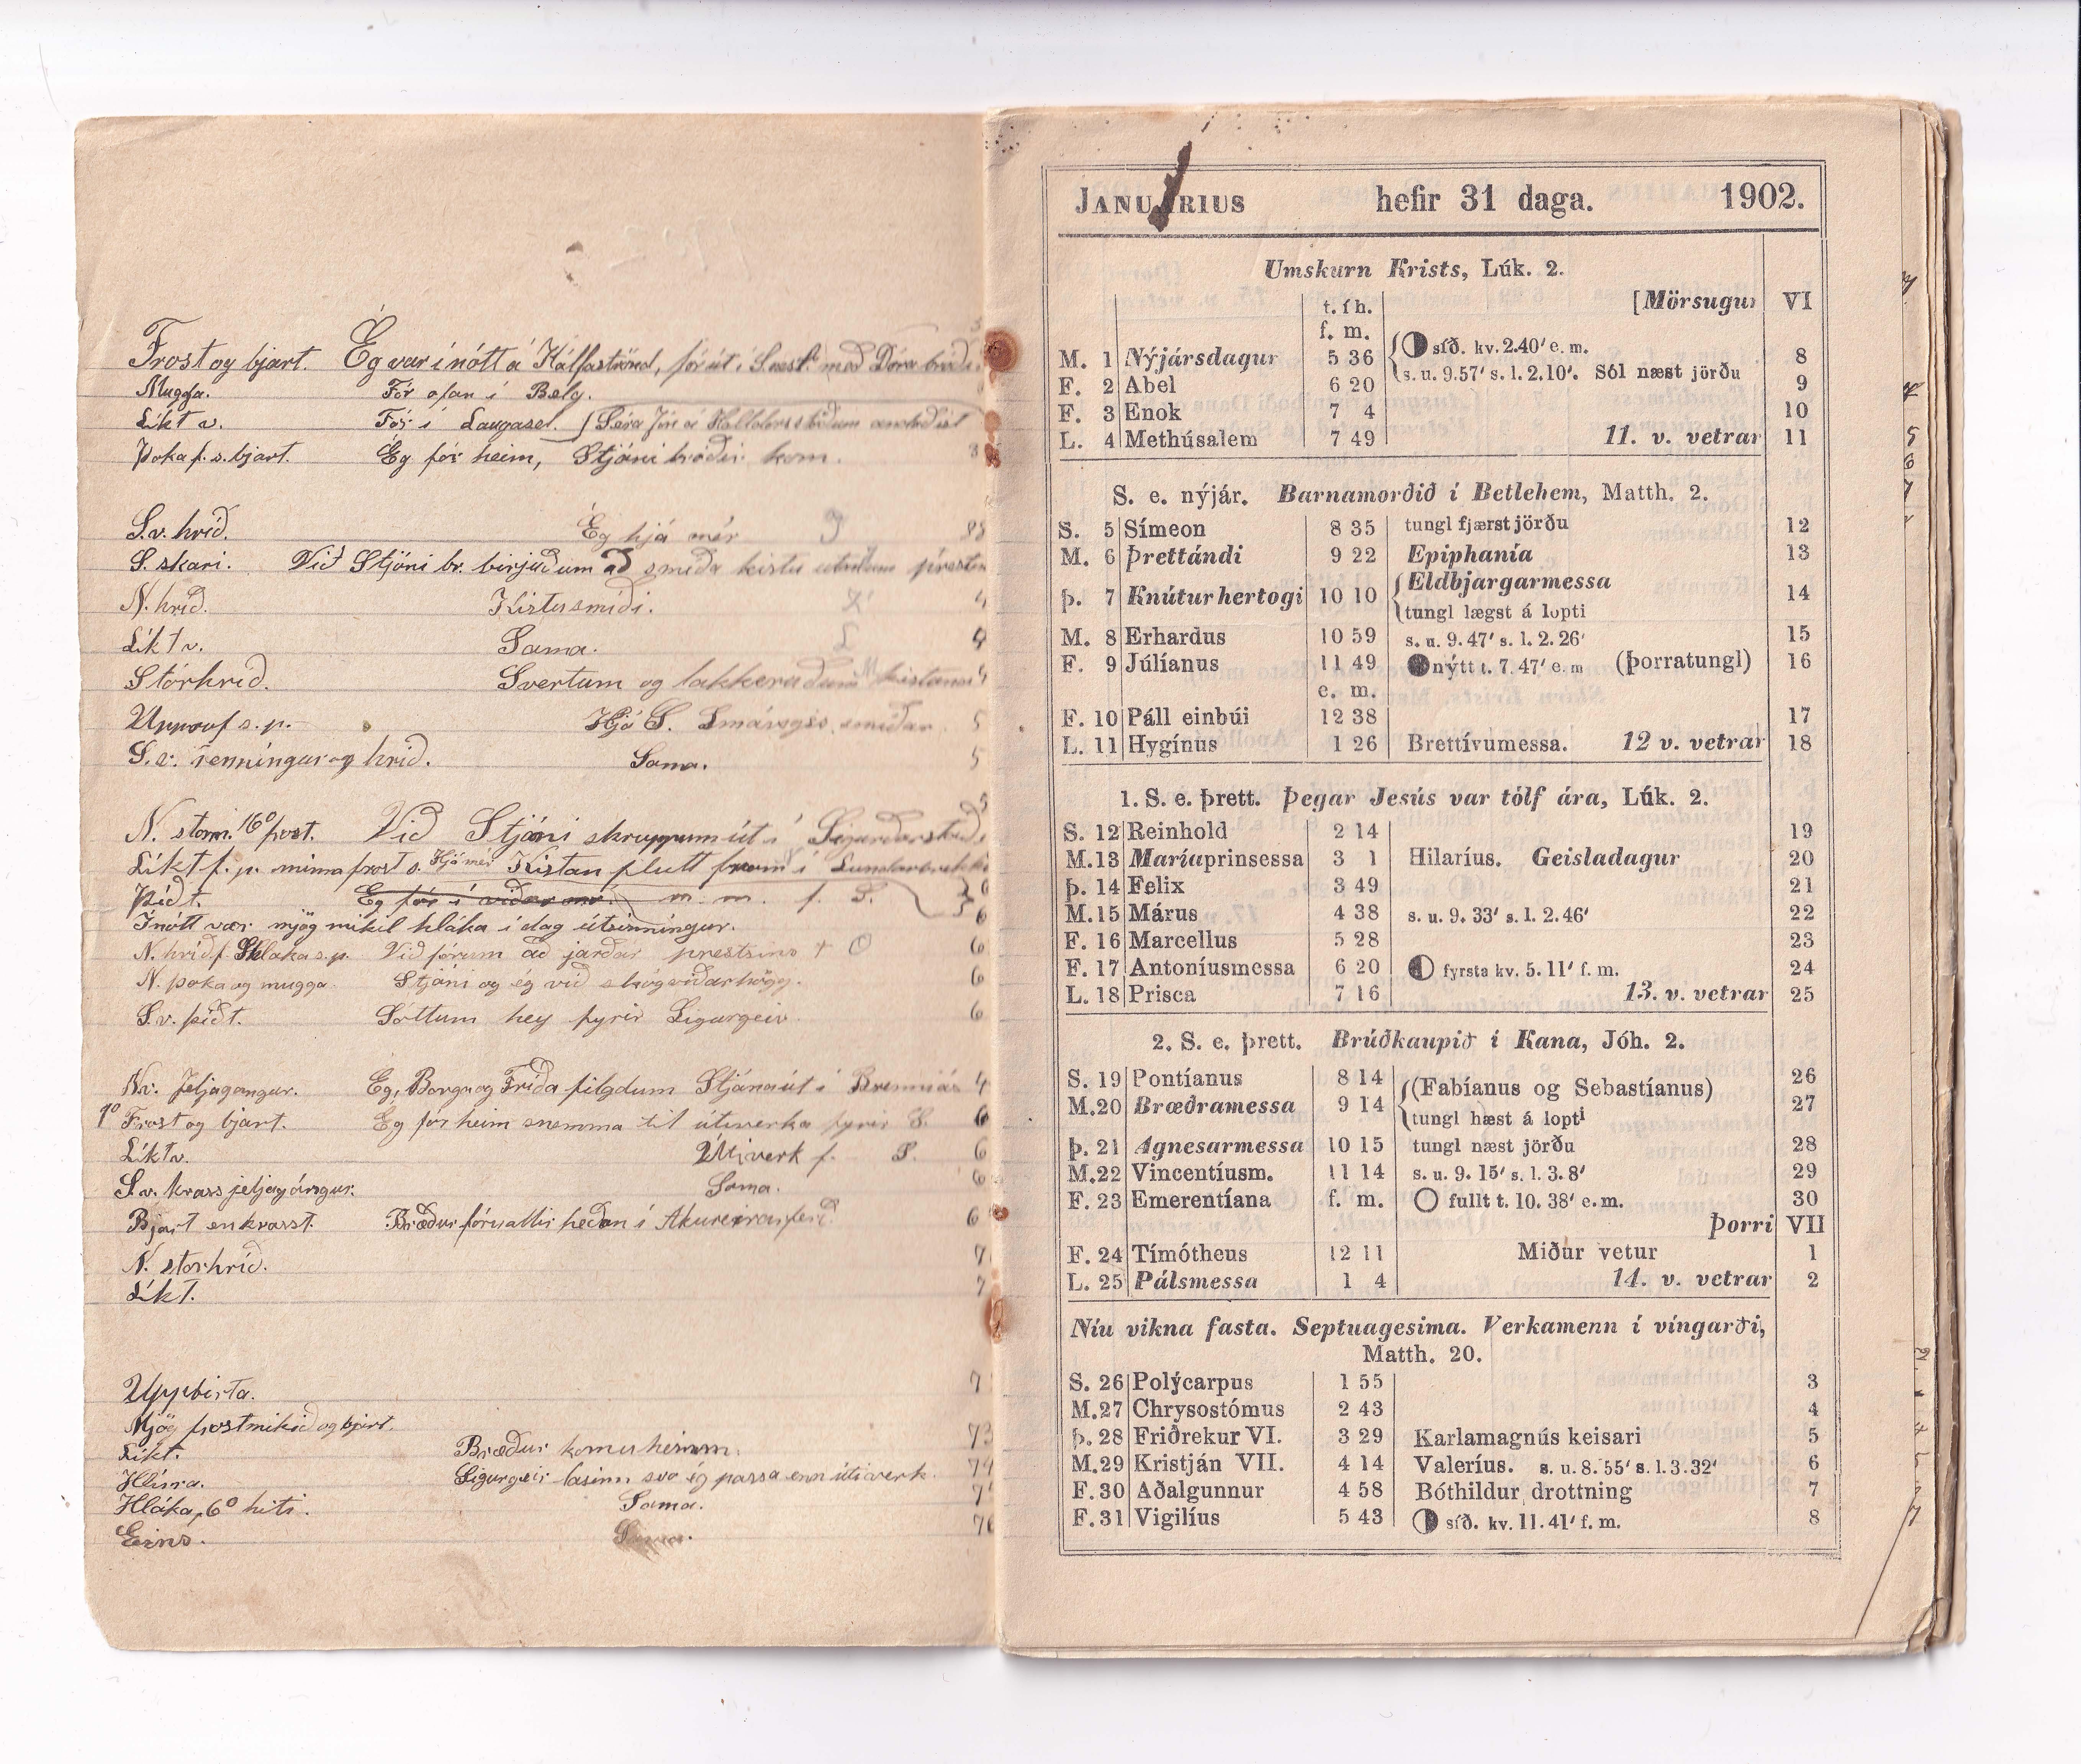 Frost og bjart. Ég var í nótt á Kálfaströnd, fór út í med Dóra bródir
Mugga. Fór ofan í Belg.
Líkt v. Fór í Laugasel. Séra Jón á Halldórsstöðum andaðist
Þoka f. s. bjart. Ég fór heim, Stjáni bróðir kom.
S.v. hríð. Ég hjá mér
S. skari. Við Stjáni br. birjuðum að smíða kistu utanum prestin
N. hríð. Kistusmíði.
Líkt v. Sama.
Stórhríð. Svertum og lakkeruðum kistuna
Upprof s.p. Hjá S. Smávegis smíðar
S.v. renningur og hríð. Sama.
N. storm. 16° frost. Við Stjáni skruppum út í Sigurðarstaði
Líkt f. p. minna frost s. Hjá mér Kistan flutt fram í Lundarbrekku
Þíðt. Eg fór í m. m. f. S.
Í nótt var mjög mikil hláka í dag útsinníngur.
N. hríð f. Hláka s.p. Við fórum að jarðar prestsins +
N. þoka og mugga. Stjáni og ég við skógviðarhögg.
S.v. þíðt. Sóttum hey fyrir Sigurgeir
Nv. Jeljagangur. Eg, Borga og Fríða filgdum Stjána út í Brenniás
1° Frost og bjart. Eg fór heim snemma til útiverka fyrir S.
Líkt v. Útiverk f. S.
S.v. krass jeljagángur. Sama.
Bjart en krasst. Bræður fóru allir héðan í Akureirarferð
N. stórhríð.
Líkt.
Uppbirta.
Mjög frostmikið og bjart.
Líkt. Bræður komu heimm.
Hlína. Sigurgeir lasinn svo ég passa enn útiverk.
Hláka, 6° hiti. Sama.
Eins. Sama.
JANUARIUS hefir 31 daga. 1902.
Umskurn Krists, Lúk. 2.
t. í h. [Mörsugur VI
f. m.
M. 1 Nýjársdagur 5 36 síð. kv. 2.40′ e. m. 8
s. u. 9.57′ s. l. 2.10′. Sól næst jörðu
F. 2 Abel 6 20 9
F. 3 Enok 7 4 10
L. 4 Methúsalem 7 49 11. v. vetrar 11
S. e. nýjár. Barnamorðið í Betlehem, Matth. 2.
S. 5 Símeon 8 35 tungl fjærst jörðu 12
M. 6 Þrettándi 9 22 Epiphanía 13
Þ. 7 Knútur hertogi 10 10 Eldbjargarmessa 14
tungl lægst á lopti
M. 8 Erhardus 10 59 s. u. 9. 47′ s. l. 2. 26′ 15
F. 9 Júlíanus 11 49 nýtt t. 7. 47′ e. m (þorratungl) 16
e. m.
F. 10 Páll einbúi 12 38 17
L. 11 Hygínus 1 26 Brettívumessa. 12 v. vetrar 18
1. S. e. þrett. Þegar Jesús var tólf ára, Lúk. 2.
S. 12 Reinhold 2 14 19
M. 13 Maríaprinsessa 3 1 Hilaríus. Geisladagur 20
Þ. 14 Felix 3 49 21
M. 15 Márus 4 38 s. u. 9. 33′ s. l. 2. 46′ 22
F. 16 Marcellus 5 28 23
F. 17 Antoníusmessa 6 20 fyrsta kv. 5. 11′ f. m. 24
L. 18 Prisca 7 16 13. v. vetrar 25
2. S. e. þrett. Brúðkaupið í Kana, Jóh. 2.
S. 19 Pontíanus 8 14 (Fabíanus og Sebastíanus) 26
M. 20 Bræðramessa 9 14 tungl hæst á lopti 27
Þ. 21 Agnesarmessa 10 15 tungl næst jörðu 28
M. 22 Vincentíusm. 11 14 s. u. 9. 15′ s. l. 3. 8′ 29
F. 23 Emerentíana f. m. fullt t. 10. 38′ e. m. 30
Þorri VII
F. 24 Tímótheus 12 11 Miður vetur 1
L. 25 Pálsmessa 1 4 14. v. vetrar 2
Níu vikna fasta. Septuagesima. Verkamenn í víngarði,
Matth. 20.
S. 26 Polýcarpus 1 55 3
M. 27 Chrysostómus 2 43 4
Þ. 28 Friðrekur VI. 3 29 Karlamagnús keisari 5
M. 29 Kristján VII. 4 14 Valeríus. s. u. 8. 55′ s. l. 3. 32′ 6
F. 30 Aðalgunnur 4 58 Bóthildur drottning 7
F. 31 Vigilíus 5 43 síð. kv. 11. 41′ f. m. 8